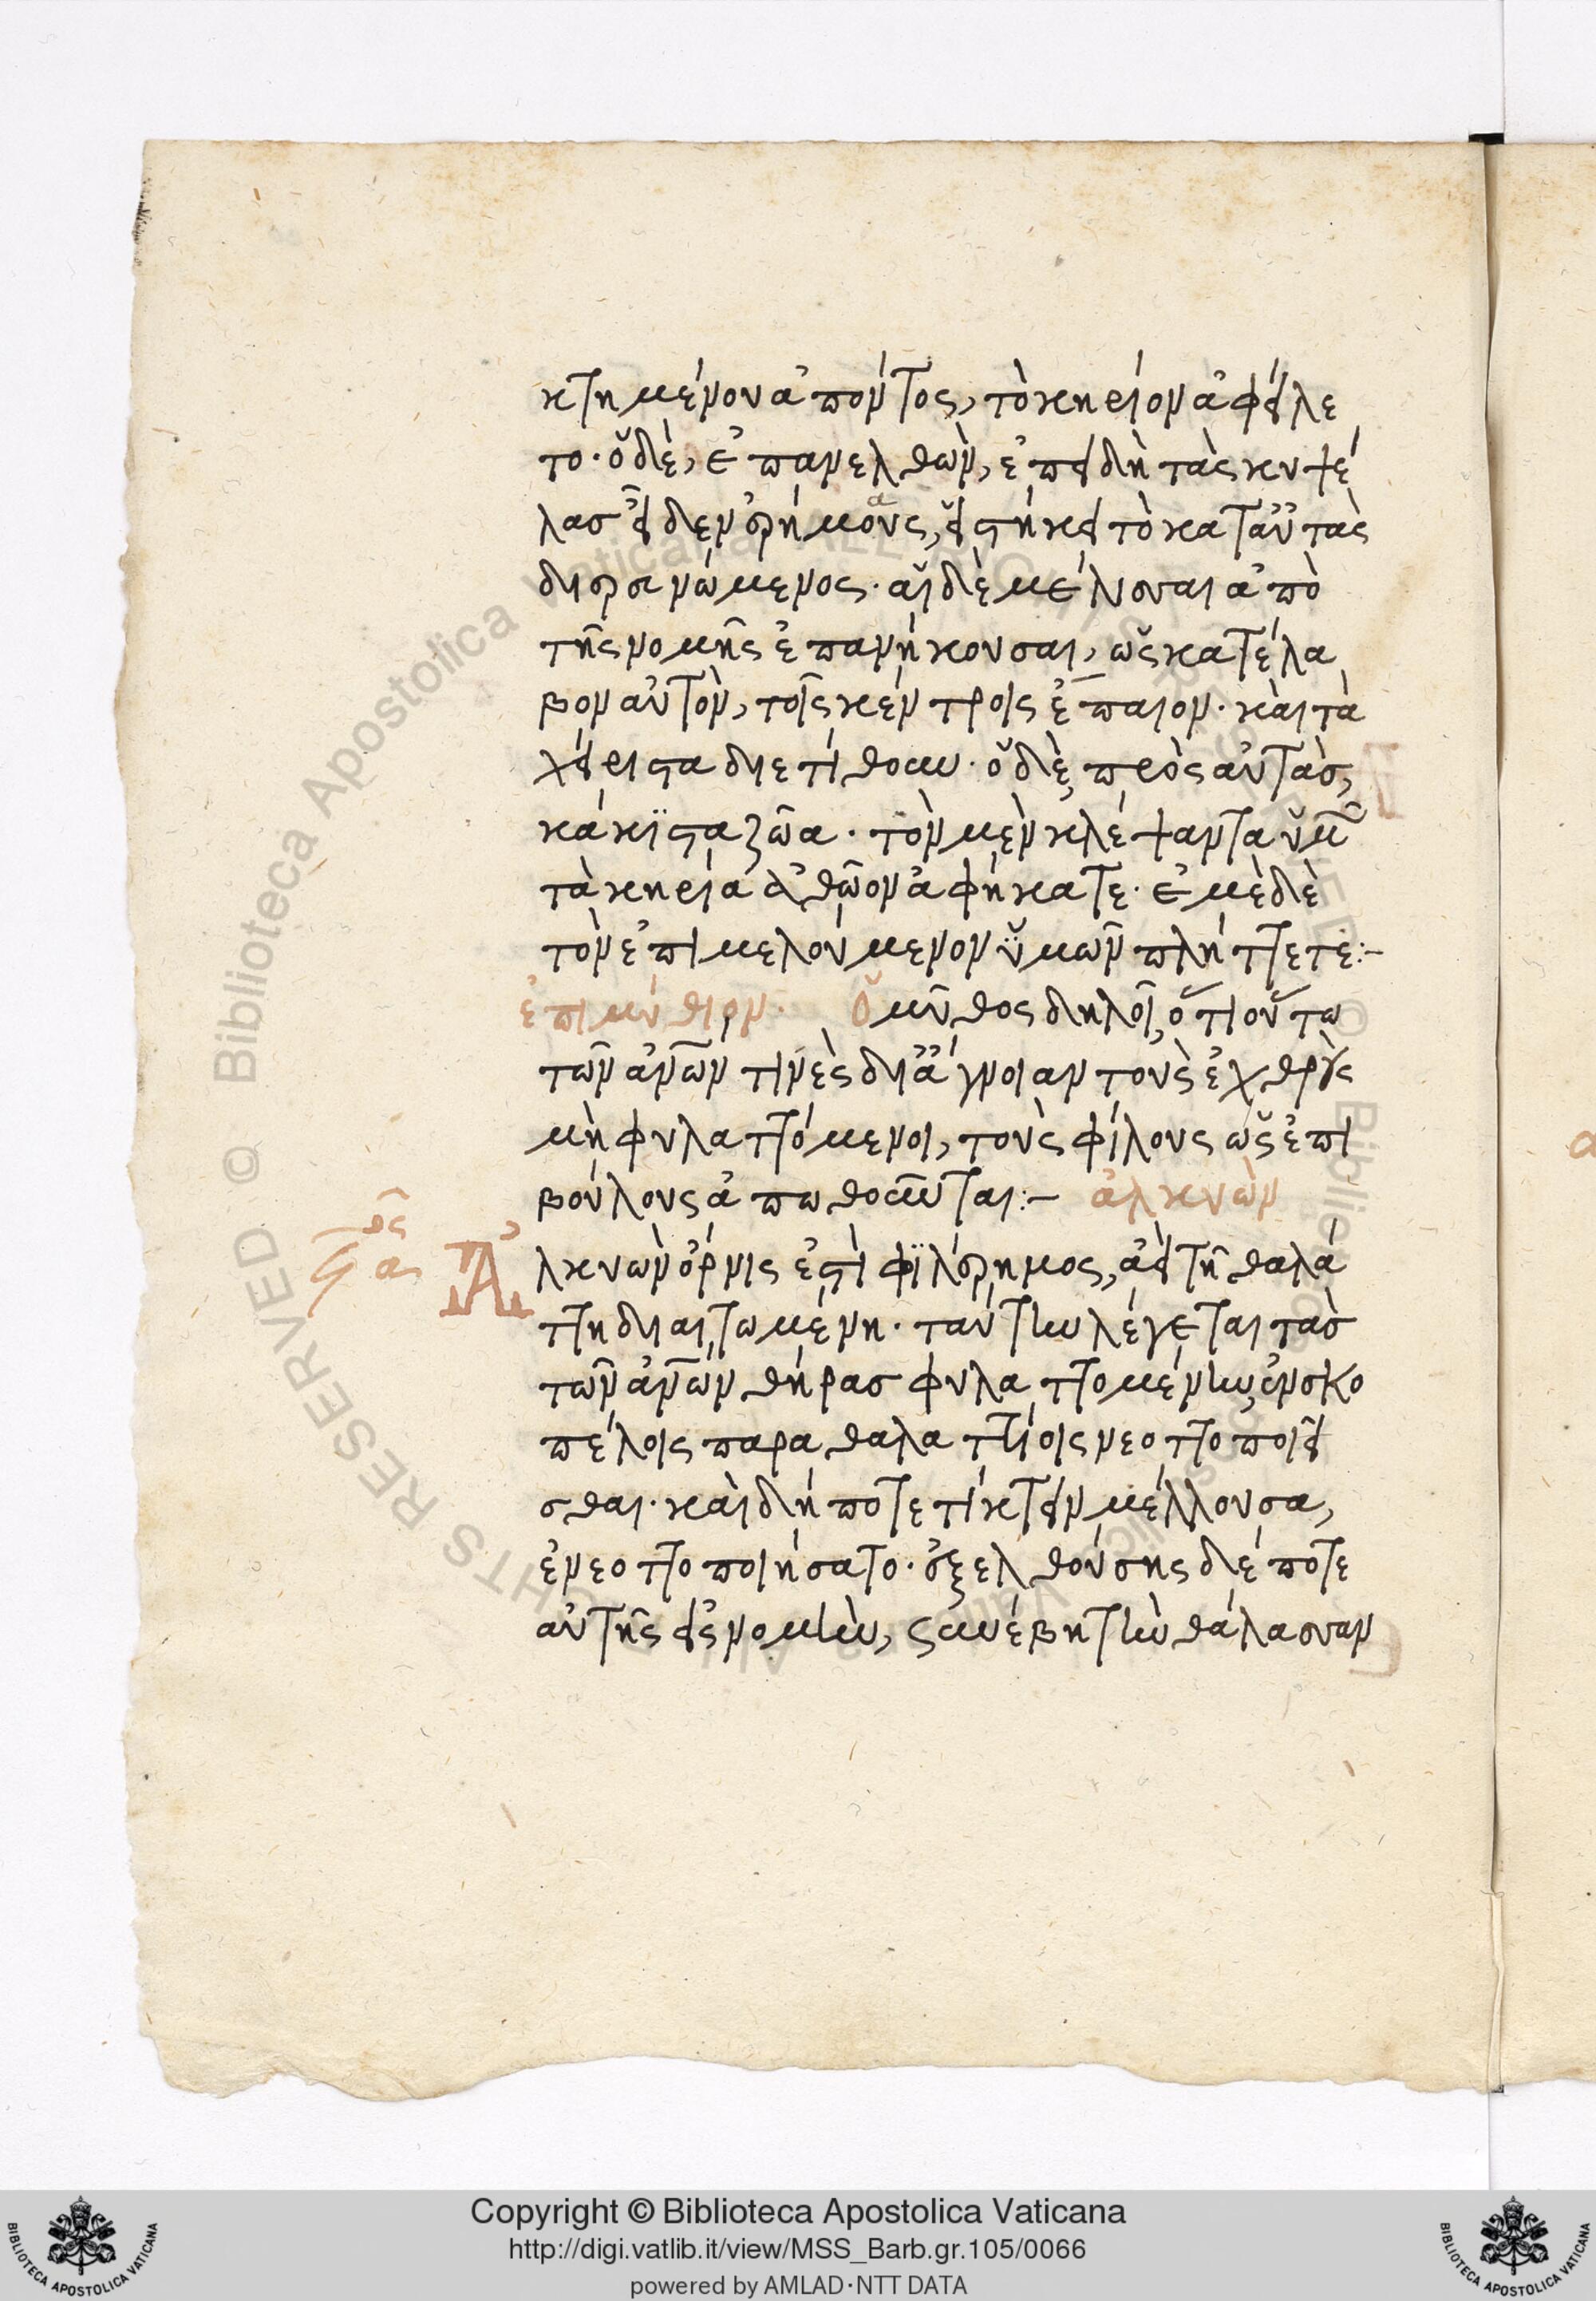 κτημένου ἀπόντος, τὸ κηρίον ἀφείλε
το· ὁ δὲ, ἐπανελθὼν, ἐπειδὴ τὰς κυψέ
λας εἶδεν ἐρήμους, εἱστήκει τὸ κατ' αὐτὰς
διερευνώμενος· αἱ δὲ μέλισσαι ἀπὸ
τῆς νομῆς ἐπανήκουσαι, ὡς κατέλα
βον αὐτὸν, τοῖς κέντροις ἔπαιον· καὶ τὰ
χείριστα διετίθουν· ὁ δὲ πρὸς αὐτὰς,
κάκιστα ζῶα· τὸν μὲν κλέψαντα ὑμῶν
τὰ κηρία ἀθῶον ἀφήκατε· ἐμὲ δὲ
τὸν ἐπιμελούμενον ὑμῶν πλήττετε:-
ἐπιμύθιον· Ὁ μῦθος δηλοῖ, ὅτι οὕτω
τῶν ἀνῶν τινὲς δι' ἄγνοιαν τοὺς ἐχθροὺς
μὴ φυλαττόμενοι, τοὺς φίλους ὡς ἐπι
βούλους ἀπωθοῦνται:- ἀλκυὼν
Ἀλκυὼν ὄρνις ἐστὶ φιλέρημος, ἀεὶ τῆ θαλά
ττη διαιτωμένη· ταύτην λέγεται τὰς
τῶν ἀνῶν θήρας φυλαττομένην, ἐν σκο
πέλοις παραθαλαττίοις νεοττοποιεῖ
σθαι· καὶ δή ποτε τίκτειν μέλλουσα,
ἐνεοττοποιήσατο· ἐξελθούσης δέ ποτε
αὐτῆς εἰς νομὴν, συνέβη τὴν θάλασσαν
Copyright © Biblioteca Apostolica Vaticana
http://digi.vatlib.it/view/MSS_Barb.gr.105/0066
powered by AMLAD·NTT DATA